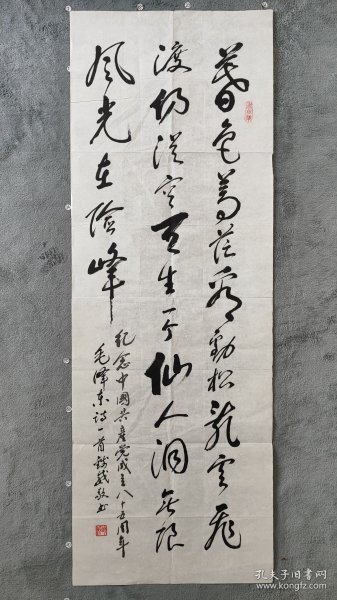 暮色蒼茫看劲松乱云飛
渡仍從容天生一个仙人洞無限
风光在险峰
纪念中國共產党成立八十五周年
毛澤東诗一首
敬书
孔夫子旧书网
kongfz.com